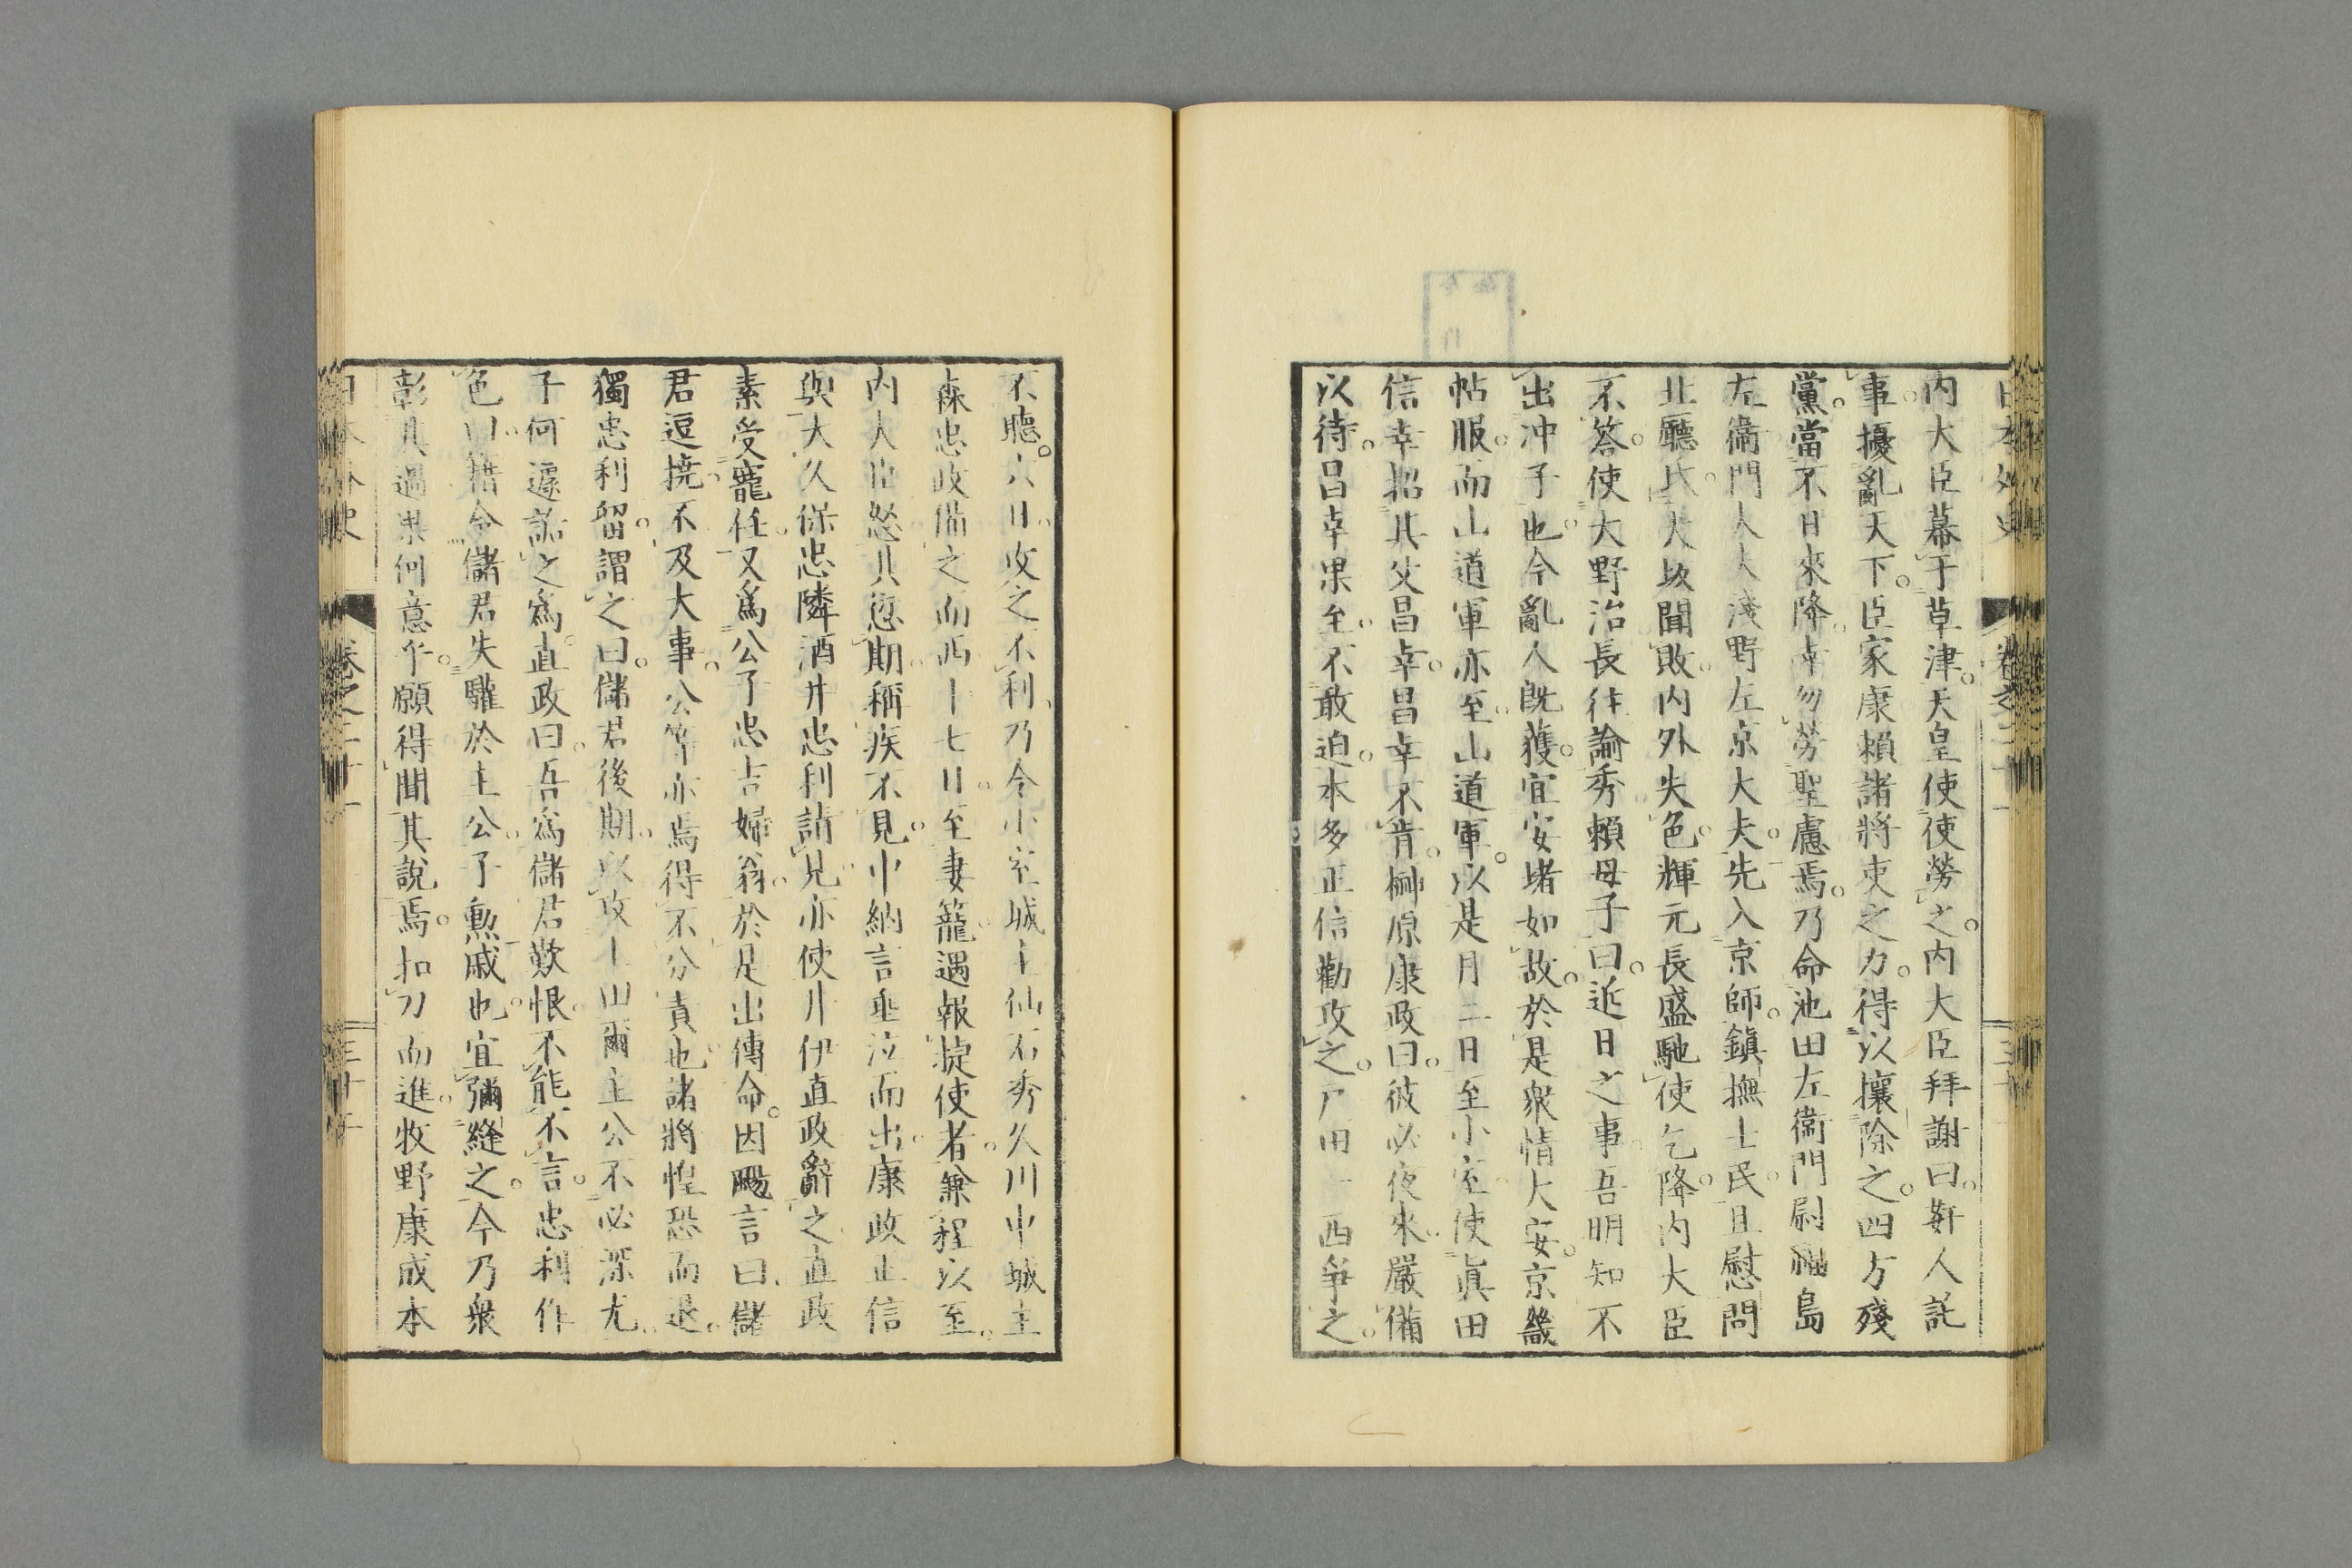 內大臣幕于草津。天皇使使勞之。內大臣拜謝曰。姧人託
事。擾亂天下。臣家康賴諸將吏之力。得以攘除之。四方殘
黨。當不日來降。幸勿勞聖慮焉。乃命池田左衞門尉福島
左衞門大夫淺野左京大夫。先入京師。鎮撫士民。且慰問
北廳氏。大坂聞敗。內外失色。輝元長盛馳使乞降。內大臣
不答。使大野治長往諭秀賴母子曰。近日之事。吾明知不
出冲子也。今亂人既獲。宜安堵如故。於是衆情大安。京畿
帖服。而山道軍亦至。山道軍。以是月二日至小室。使眞田
信幸招其父昌幸。昌幸不肯。榊原康政曰。彼必夜來。嚴備
以待。昌幸果至。不敢迫。本多正信勸攻之。戸田一西爭之。
不聽。六日攻之。不利。乃令小室城主仙石秀久川中城主
森忠政備之而西。十七日。至妻籠。遇報捷使者。兼程以至。
內大臣怒其愆期。稱疾不見。中納言垂泣而出。康政正信
與大久保忠隣酒井忠利請見。亦使井伊直政辭之。直政
素受寵任。又爲公子忠吉婦翁。於是出傳命。因颺言曰。儲
君逗撓。不及大事。公等亦焉得不分責也。諸將惶恐而退。
獨忠利留。謂之曰。儲君後期。以攻上田爾。主公不必深尤。
子何遽訴之爲。直政曰。吾爲儲君歎恨。不能不言。忠利作
色曰。藉令儲君失驩於主公。子勲戚也。宜彌縫之。今乃衆
彰其過。果何意乎。願得聞其說焉。扣刀而進。牧野康成本
卷之二十一